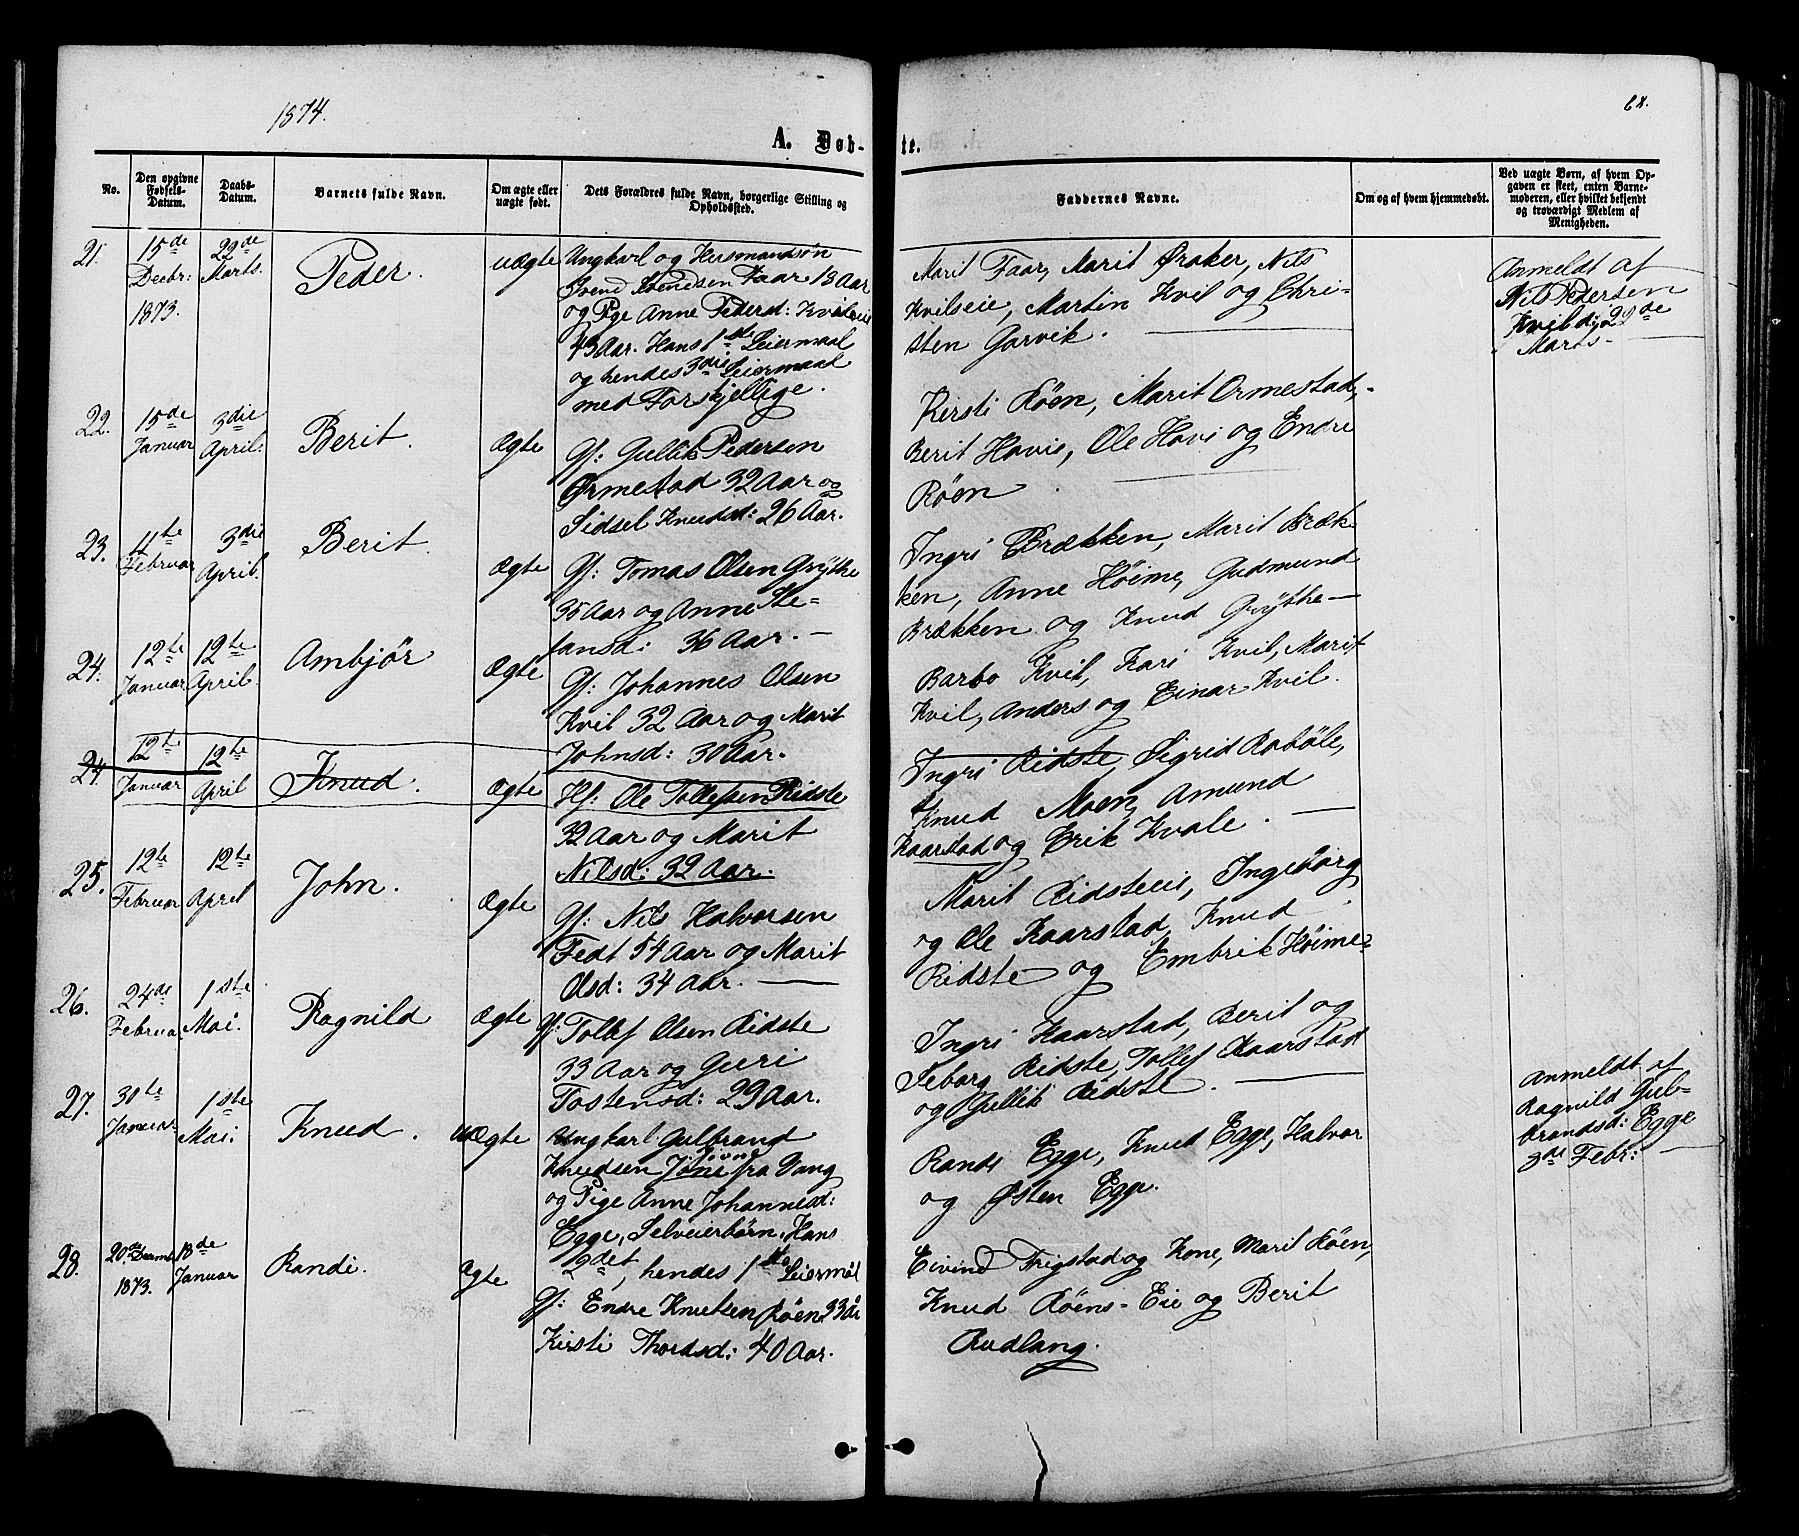 1874.
68.
A. Døb-
te.
No.
Den opgivne Fødsels-Datum.
Daabs-Datum.
Barnets fulde Navn.
Om ægte eller uægte født.
Dets Forældres fulde Navn, borgerlige Stilling og Opholdssted.
Faddernes Navne.
Om og af hvem hjemmedøbt.
Ved uægte Børn, af hvem Op-
gaven er skeet, enten Barne-
moderen, eller hvilket bekjendt
og troværdigt Medlem af
Menigheden.
21.
15de
Decbr:
1873.
22de
Marts.
Peder.
uægte
Ungkarl og Husmandsøn
Svend Svendsen Faar 13 Aar
og Pige Anne Pedersd: Kvilseie
43 Aar. Hans 1ste Leiermaal
og hendes 3die Leiermaal
med Forskjellige.
Marit Faar, Marit Øraker, Nils
Kvilseie, Martin Kvil og Chri-
sten Garvik.
Anmeldt af
Nils Pedersen
Kvil d: 22de
Marts
22.
15de
Januar
3die
April.
Berit.
Ægte
Gf: Gullik Pedersen
Ørmestad 32 Aar og
Sidsel Knudsd: 26 Aar.
Kirsti Røen, Marit Ormestad,
Berit Hovie, Ole Hovi og Endre
Røen
23.
11te
Februar
3die
April.
Berit.
Ægte
Gf: Tomas Olsen Grÿthe
35 Aar og Anne Ste-
fansd: 36 Aar. —
Ingri Brækken, Marit Bræk-
ken, Anne Høime, Gudmund
Brækken og Knud Grÿthe —
24.
12te
Januar
12te
April.
Ambjör
Ægte
Gf: Johannes Olsen
Kvil 32 Aar og Marit
Johnsd: 30 Aar.
Barbo Kvil, Kari Kvil, Marit
Kvil, Anders og Einar Kvil.
24.
12te
Januar
12te
April
Knud.
Ægte
Hf: Ole Tollefsen Ridste
32 Aar og Marit
Nilsd: 32 Aar.
Ingri Ridste, Sigrid Robøle,
Knud Moen, Amund
Kaarstad og Erik Kvale. —
25.
12te
Februar
12te
April
John.
Ægte
Gf: Nils Halvorsen
Fedt 54 Aar og Marit
Olsd: 34 Aar. —
Marit Ridsteeie, Ingebörg
og Ole Kaarstad, Knud
Ridste og Embrik Höime-
26.
24de
Februar
1ste
Mai.
Ragnild
Ægte
Gf: Tollef Olsen Ridste
33 Aar og Guri
Tostensd: 29 Aar.
Ingri Kaarstad, Berit og
Seborg Ridste, Tollef Kaarstad
og Gullik Ridste. —
27.
30te
Januar
1ste
Mai.
Knud.
uÆgte
Ungkarl Gulbrand
Jövne
Knudsen Jöne fra Vang
og Pige Anne Johannesd:
Egge, Selveierbørn, Hans
2det, hendes 1ste Leiermål
Randi Egge, Knud Egge, Halvor
og Østen Egge.
Anmeldt af
Ragnild Gul-
brandsd: Egge
3de Febr: —
28.
20de Decemb.
1873.
18de
Januar
Randi.
Ægte
Gf: Endre Knutsen Röen 33 år
Kirsti Thordsd: 40 Aar.
Eivind Trigstad og Kone, Marit Röen,
Knud Röens-Eie og Berit
Rudlang.